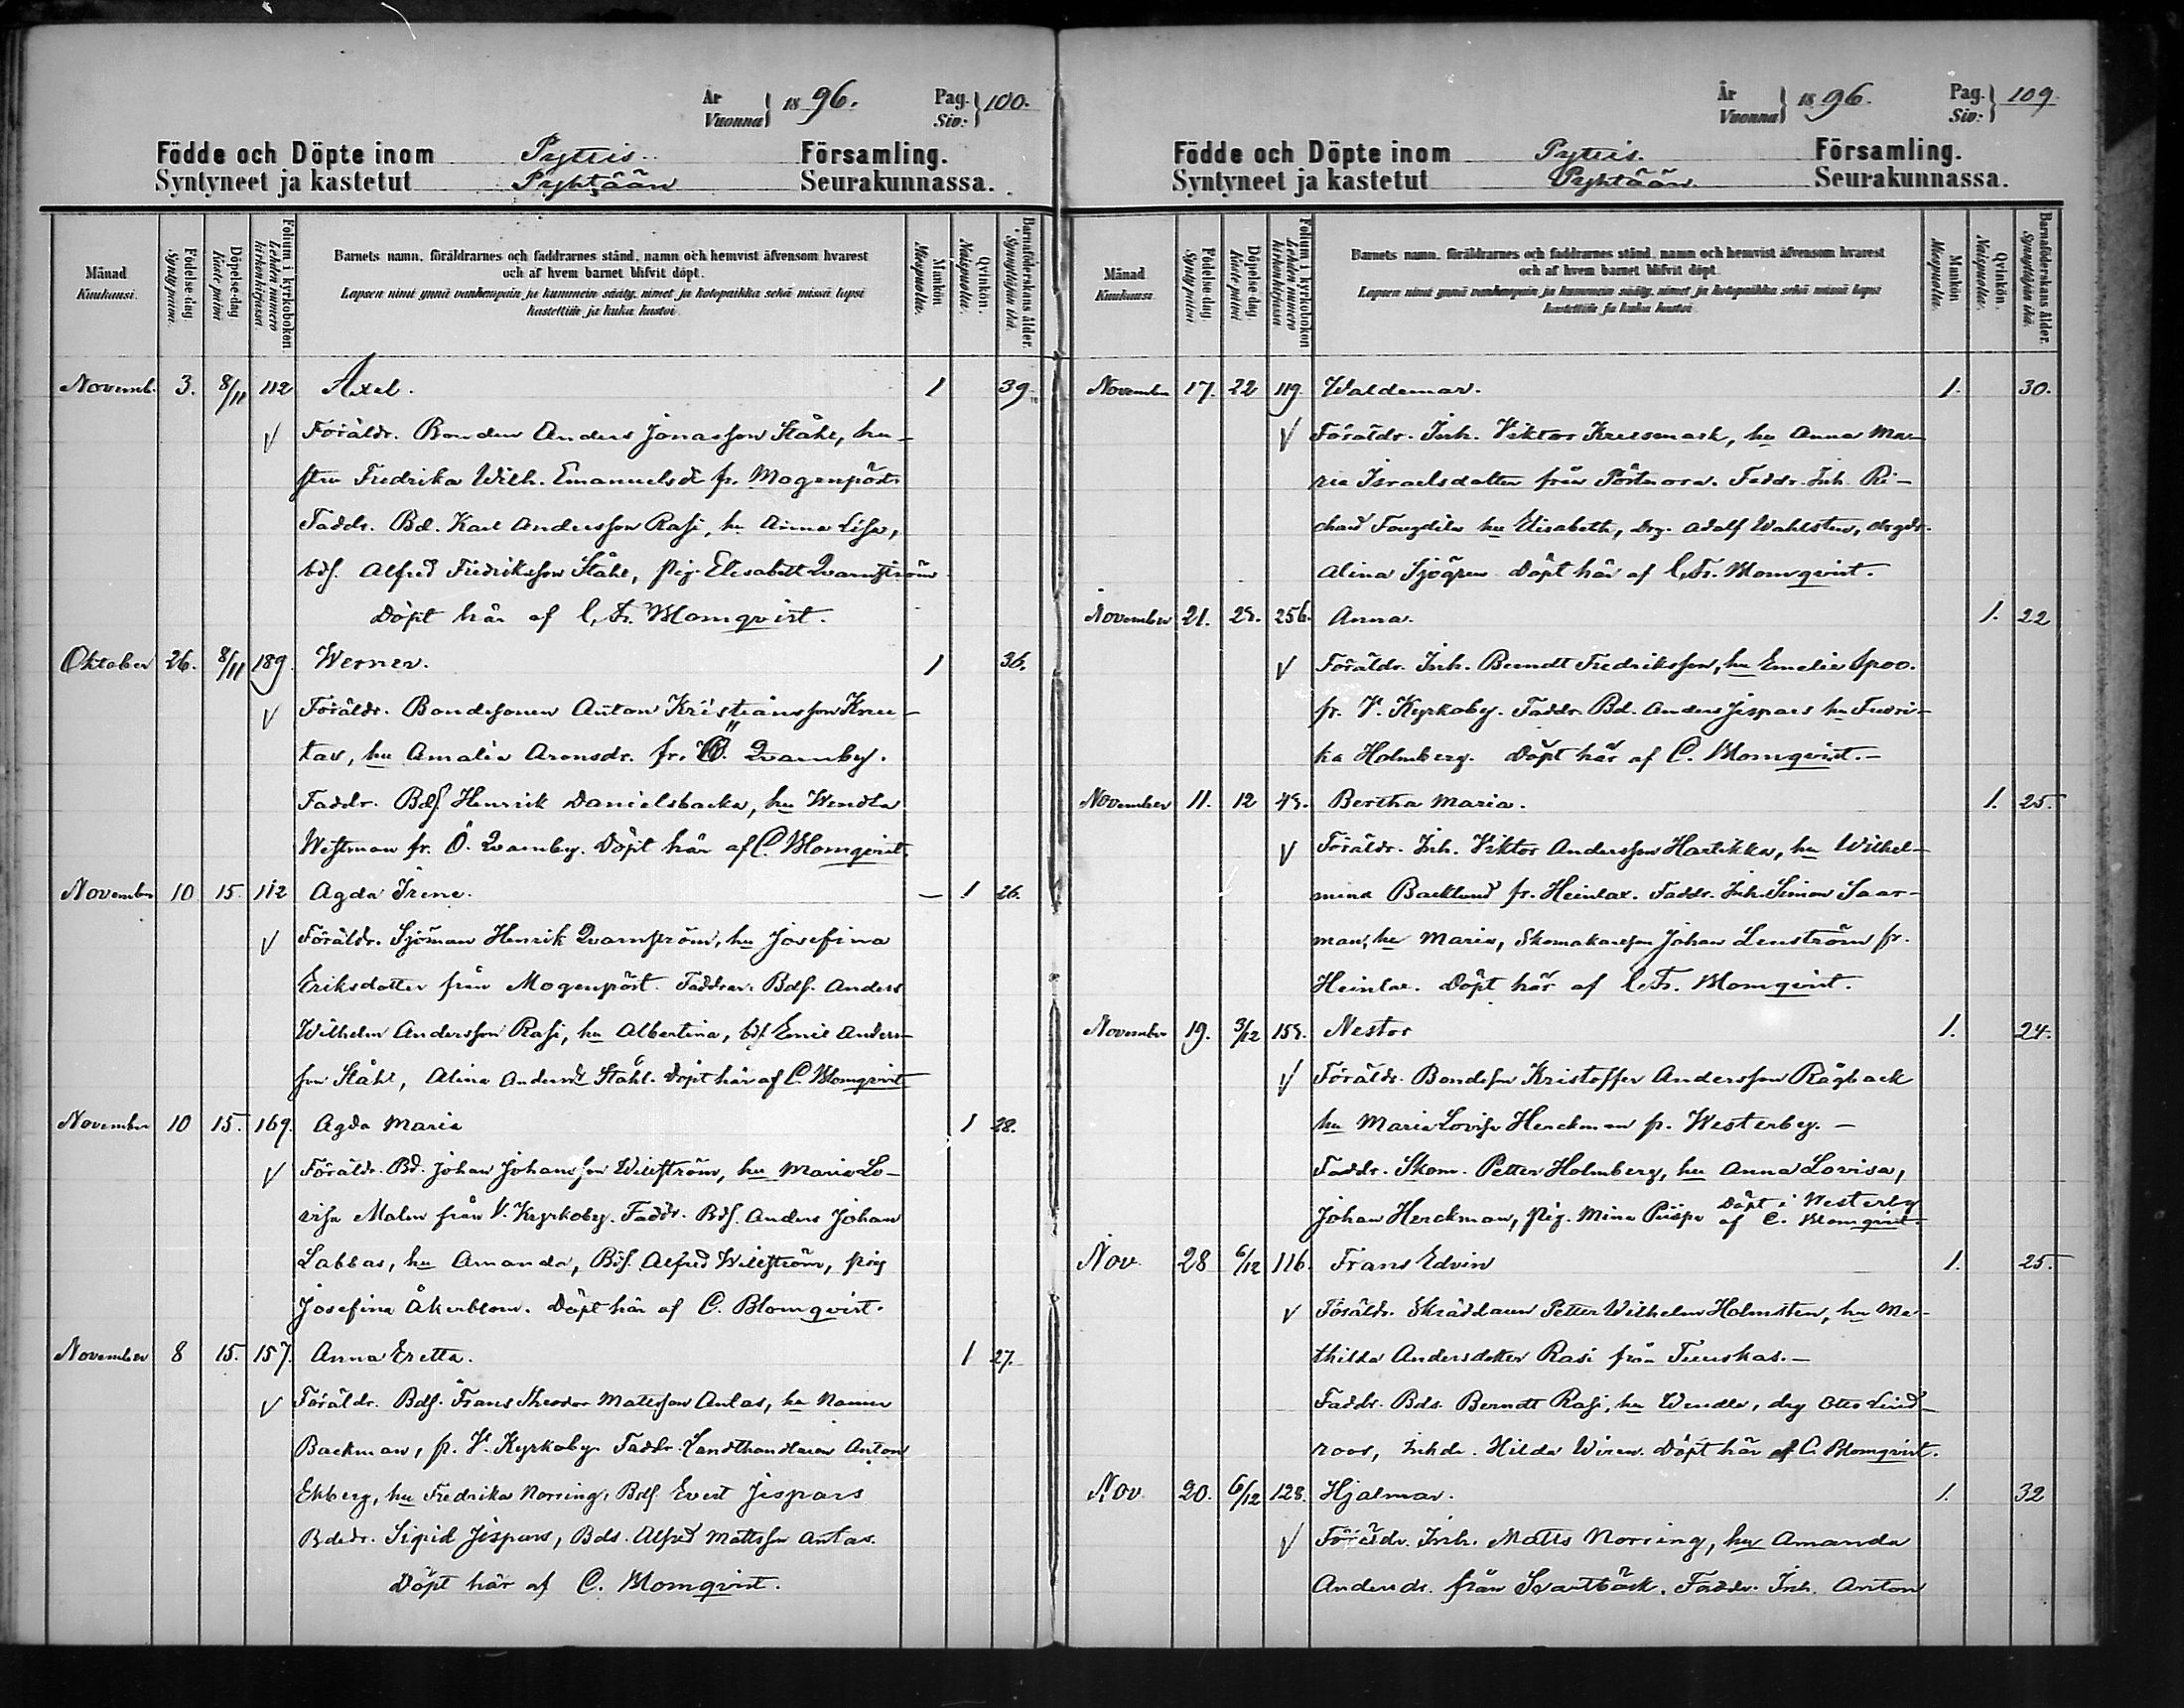 År
Vuonna } 1896. Pag. Siv: } 100.
Födde och Döpte inom Pyttis Församling.
Syntyneet ja kastetut Pyhtään Seurakunnassa.
Månad Kuukausi.
Födelse-dag. Synty päivä.
Döpelse-dag Kaste päivä
Folium i kyrkoboken Lehden numero kirkonkirjassa.
Barnets namn, föräldrarnes och faddrarnes stånd, namn och hemvist äfvensom hvarest
och af hvem barnet blifvit döpt.
Lapsen nimi ynnä vanhempain ja kummein sääty, nimet ja kotopaikka sekä missä lapsi
kastettiin ja kuka kastoi.
Mankön Miespuolia.
Qvinkön. Naispuolia.
Barnaföderskans ålder. Synnyttäjän ikä.
Novemb. 3. 8/11 112 Axel. 1 39
Föräldr. Bonden Anders Jonasson Ståhl, hu-
stru Fredrika Wilh. Emanuelsdr fr. Mogenpört.
Faddr. Bd. Karl Andersson Rasi, hu Anna Lisa,
bds. Alfred Fredriksson Ståhl, pig. Elisabett Qvarnström
Döpt här af C. Fr. Blomqvist.
Oktober 26. 8/11 189. Werner. 1 36.
Föräldr. Bondesonen Anton Kristiansson Knu-
tas, hu Amalia Aronsdr. fr. Ö. Qvarnby.
Faddr. Bds Henrik Danielsbacka, hu Wendla
Westman fr. Ö. Qvarnby. Döpt här af C. Blomqvist.
November 10 15. 112 Agda Irene. — 1 26.
Föräldr. Sjöman Henrik Qvarnström, hu Josefina
Eriksdotter från Mogenpört. Faddrar. Bds. Anders
Wilhelm Andersson Rasi, hu Albertina, bds Emil Anders-
son Ståhl, Alina Andersdr Ståhl. Döpt här af C. Blomqvist
November 10 15. 169. Agda Maria 1 28.
Föräldr. Bd. Johan Johansson Willström, hu Maria Lo-
visa Malm från V. Kyrkoby. Faddr. Bds. Anders Johan
Labbas, hu Amanda, Bds. Alfred Willström, pig
Josefina Åkerblom. Döpt här af C. Blomqvist.
November 8 15. 157. Anna Eretta. 1 27.
Föräldr. Bds. Frans Theodor Mattsson Antas, hu Nanna
Backman, fr. V. Kyrkoby. Faddr. Landthandlaren Anton
Ekberg, hu Fredrika Norring, Bds Evert Jispars
Bdedr. Sigrid Jispars, Bds. Alfred Mattsson Antas.
Döpt här af C. Blomqvist.
År
Vuonna } 1896. Pag. Siv: } 109
Födde och Döpte inom Pyttis. Församling.
Syntyneet ja kastetut Pyhtään. Seurakunnassa.
Månad. Kuukausi.
Födelse-dag. Synty päivä
Döpelse-dag. Kaste päivä
Folium i kyrkoboken Lehden numero kirkonkirjassa
Barnets namn, föräldrarnes och faddrarnes stånd, namn och hemvist äfvensom hvarest
och af hvem barnet blifvit döpt.
Lapsen nimi ynnä vanhempain ja kummein sääty, nimet ja kotopaikka sekä missä lapsi
kastettiin ja kuka kastoi.
Mankön Miespuolia.
Qvinkön. Naispuolia.
Barnaföderskans ålder. Synnyttäjän ikä.
November 17. 22 119. Waldemar. 1. 30.
Föräldr. Inh. Viktor Kreismark, hu Anna Ma-
ria Israelsdotter från Pörtnora. Faddr. Inh. Ri-
chard Fougdila hu Elisabeth, Drg. Adolf Wahlsten, drgdr.
Alina Sjögren Döpt här af C. Fr. Blomqvist.
November 21. 29. 256. Anna. 1. 22
Föräldr. Inh. Berndt Fredriksson, hu Emelie Spoo.
fr. V. Kyrkoby. Faddr. Bd. Anders Jispars hu Fredri-
ka Holmberg. Döpt här af C. Blomqvist.—
November 11. 12 49. Bertha Maria. 1. 25.
Föräldr. Inh. Viktor Andersson Hartikka, hu Wilhel-
mina Backlund fr. Heinlax. Faddr. Inh. Simon Saar-
man, hu Maria, Skomakareson Johan Lenström fr.
Heinlax. Döpt här af C. Fr. Blomqvist.
November 19. 3/12 159. Nestor 1. 24.
Föräldr. Bondeson Kristoffer Andersson Rågback
hu Maria Lovisa Herckman fr. Westerby. —
Faddr. Skom. Petter Holmberg, hu Anna Lovisa,
Johan Herckman, pig. Mina Piispa Döpt i Westerby
af C. Blomqvist.
Nov. 28 6/12 116. Frans Edvin 1. 25.
Föräldr. Skräddaren Petter Wilhelm Holmsten, hu Ma-
thilda Andersdotter Rasi från Tuuskas.—
Faddr. Bds. Berndt Rasi, hu Wendla, drg Otto Lind-
roos, Inhdr. Hilda Wiren. Döpt här af C. Blomqvist.
Nov. 20. 6/12 128. Hjalmar. 1. 32
Föräldr. Inh. Matts Norring, hu Amanda
Andersdr. från Svartbäck. Faddr. Inh. Anton